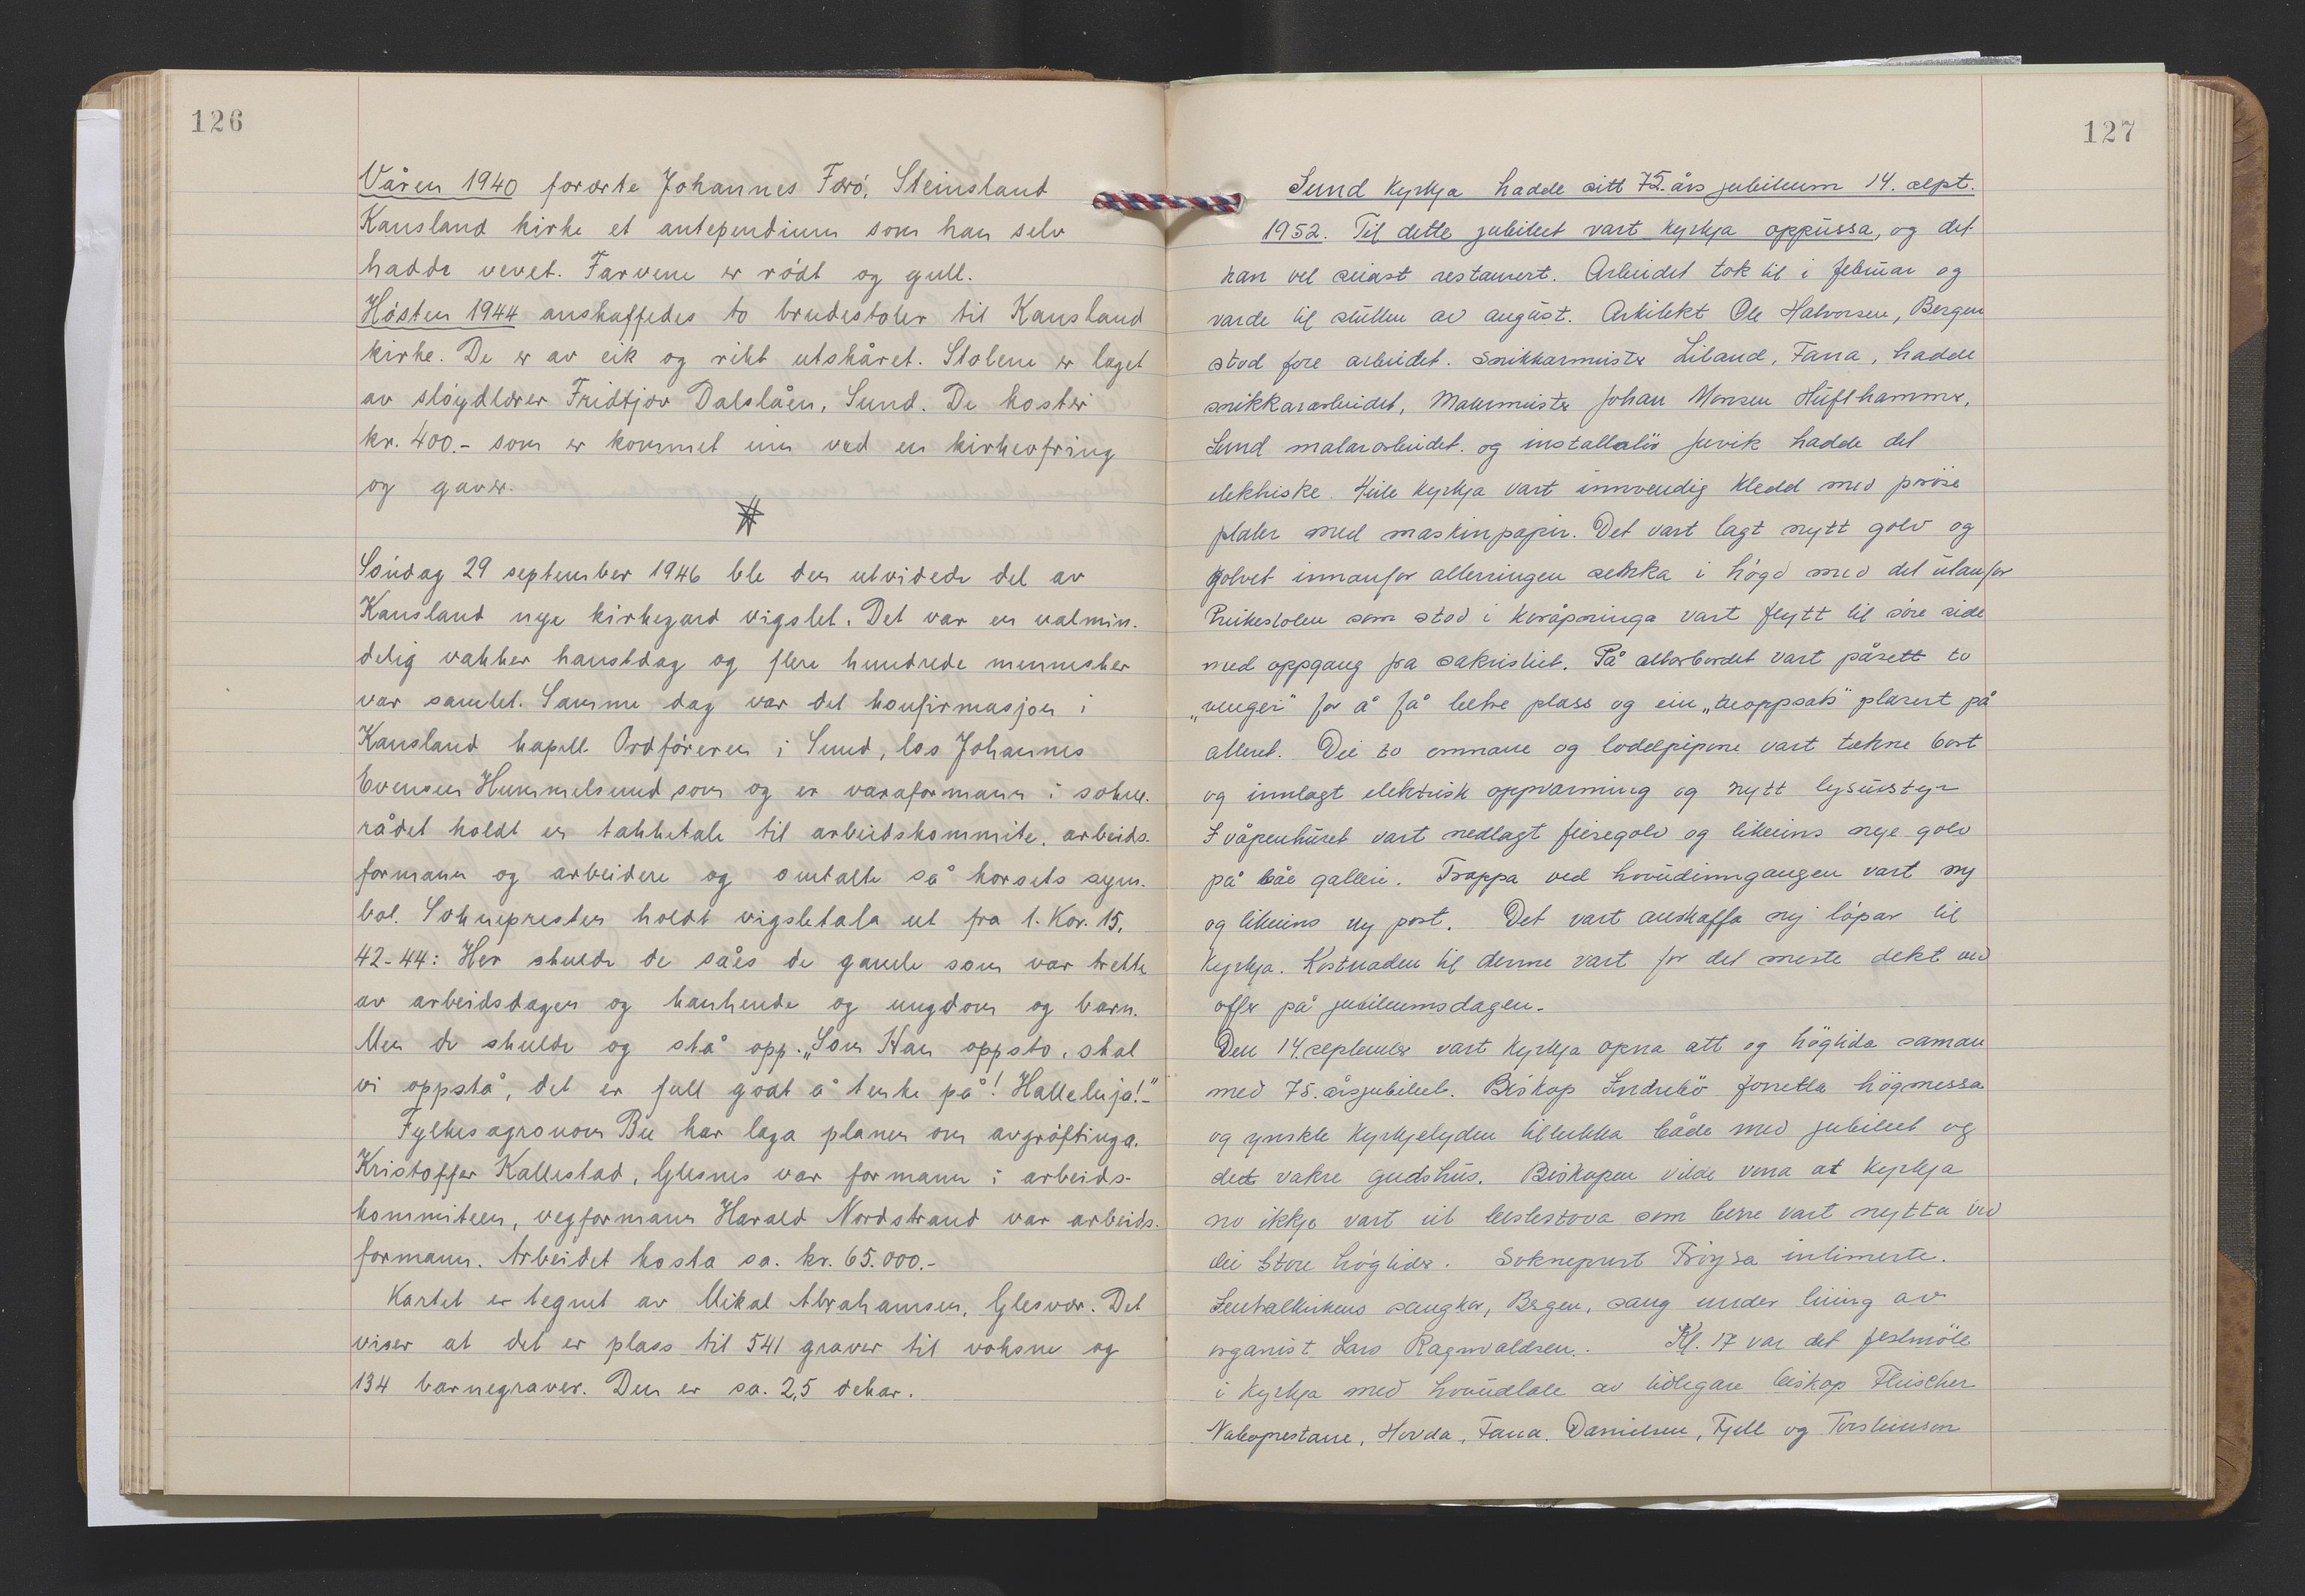 126
Våren 1940 forærte Johannes Færö, Steinsland
Kausland kirke et antependium som han selv
hadde vevet. Farvene er rödt og gull.
Hösten 1944 anskaffedes to brudestoler til Kausland
kirke. De er av eik og rikt utskåret. Stolene er laget
av slöydlærer Fridtjov Dalslåen, Sund. De koster
kr. 400.- som er kommet inn ved en kirkeofring
og gaver.
Söndag 29 september 1946 ble den utvidede del av
Kausland nye kirkegard vigslet. Det var en ualmin-
delig vakker haustdag og flere hundrede mennesker
var samlet. Samme dag var det konfirmasjon i
Kausland kapell. Ordföreren i Sund, los Johannes
Evensen Hummelsund som og er varaformann i sokne-
rådet holdt en takketale til arbeidskommite, arbeids-
formann og arbeidere og omtalte så korsets sym-
bol. Sokneprest­en holdt vigsletala ut fra 1. Kor. 15,
42-44: Her skulde de såes de gamle som var trette
av arbeidsdagen og hanhende og ungdom og barn.
Men de skulde og stå opp. „Som Han oppsto, skal
vi oppstå, det er full godt å tenke på! Halleluja!"-
Fylkesagronom Bu har laga planen om avgröftinga.
Kristoffer Kallestad, Glesnes var formann i arbeids-
kommiteen, vegformann Harald Nordstrand var arbeids-
formann. Arbeidet kosta sa. kr. 65.000.-
Kartet er tegnet av Mikal Abrahamsen, Glesvær. Det
viser at det er plass til 541 graver til voksne og
134 barnegraver. Den er sa. 2,5 dekar.
127
Sund kyrkja hadde sitt 75. års jubileum 14. sept.
1952. Til dette jubileet vart kyrkja oppussa, og det
kan vel seiast restaurert. Arbeidet tok til i februar og
varde til slutten av august. Arkitekt Ole Halvorsen, Bergen
stod fore arbeidet. Snikkarmeister Liland, Fana, hadde
snikkararbeidet, Malermeister Johan Monsen Hufthammer,
Sund malararbeidet. og installatör Juvik hadde det
elektriske. Heile kyrkja vart innvendig kledd med poröse
plater med maskinpapir. Det vart lagt nytt golv og
golvet innanfor alterringen senka i högd med det utanfor
Preikestolen som stod i koråpninga vart flytt til söre side
med oppgang fra sakristiet. På alterbordet vart påsett to
„venger" for å få betre plass og ein „teoppsats" plasert på
alteret. Dei to omnane og lodelpipone vart tekne bort
og innlagt elektrisk oppvarming og nytt lysutstyr
I våpenhuset vart nedlagt fliregolv og likeeins nye golv
på båe galleri. Trappa ved hovudinngangen vart ny
og likeeins ny port. Det vart anskaffa ny löpar til
kyrkja. Kostnaden til denne vart for det meste dekt ved
offer på jubileumsdagen.
Den 14. september vart kyrkja opna att og höglida saman
med 75. årsjubileet. Biskop Indrebö forretta högmessa
og ynskte kyrkjelyden tillukka både med jubileet og
det vakre gudshus. Biskopen vilde vona at kyrkja
no ikkje vart ei bestestova som berre vart nytta ved
dei store höglider. Sokneprest Fröysa intimerte.
Sentralkirkens sangkor, Bergen, sang under leiing av
organist Lars Ragnvaldsen. Kl. 17 var det festmöte
i kyrkja med hovudtale av tidlegare biskop Fleischer
Naboprestane, Hovda, Fana. Danielsen, Fjell og Torsteinson